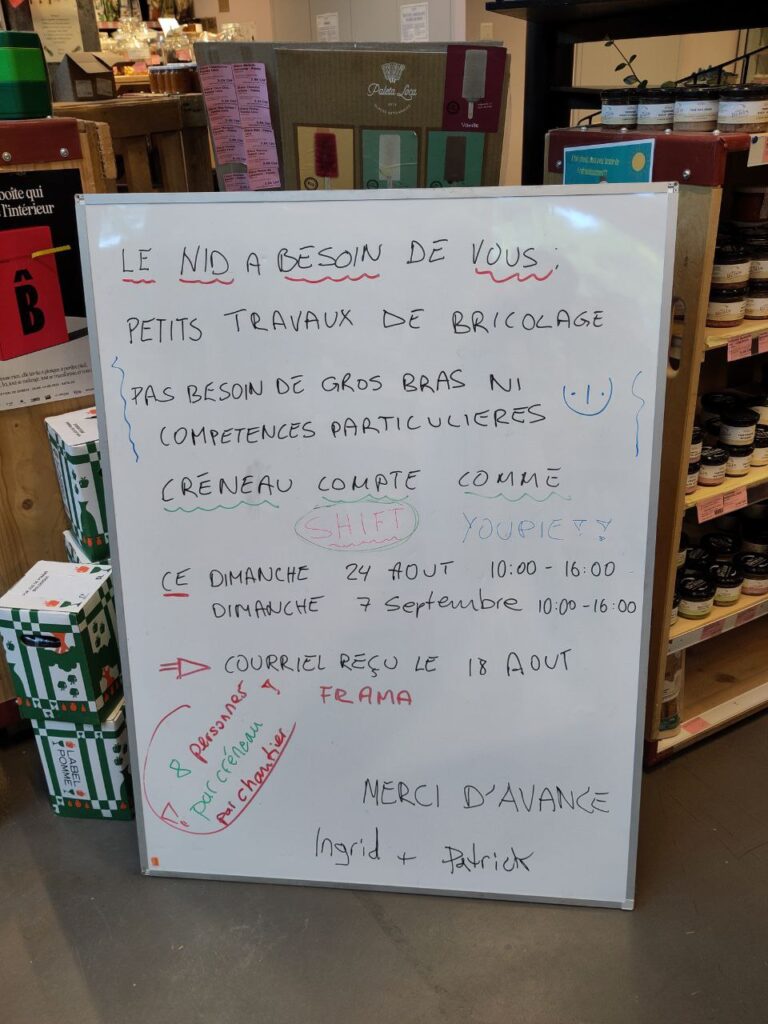 Paleta Loca
Vanille
boîte qui
l'intérieur
B
LE NID A BESOIN DE VOUS :
PETITS TRAVAUX DE BRICOLAGE
PAS BESOIN DE GROS BRAS NI
COMPETENCES PARTICULIERES
CRÉNEAU COMPTE COMME
SHIFT YOUPIE !!
CE DIMANCHE 24 AOUT 10:00 - 16:00
DIMANCHE 7 Septembre 10:00 - 16:00
COURRIEL REÇU LE 18 AOUT
FRAMA
! 8 personnes !
par créneau
par chantier
MERCI D'AVANCE
Ingrid + Patrick
LABEL
POMME!